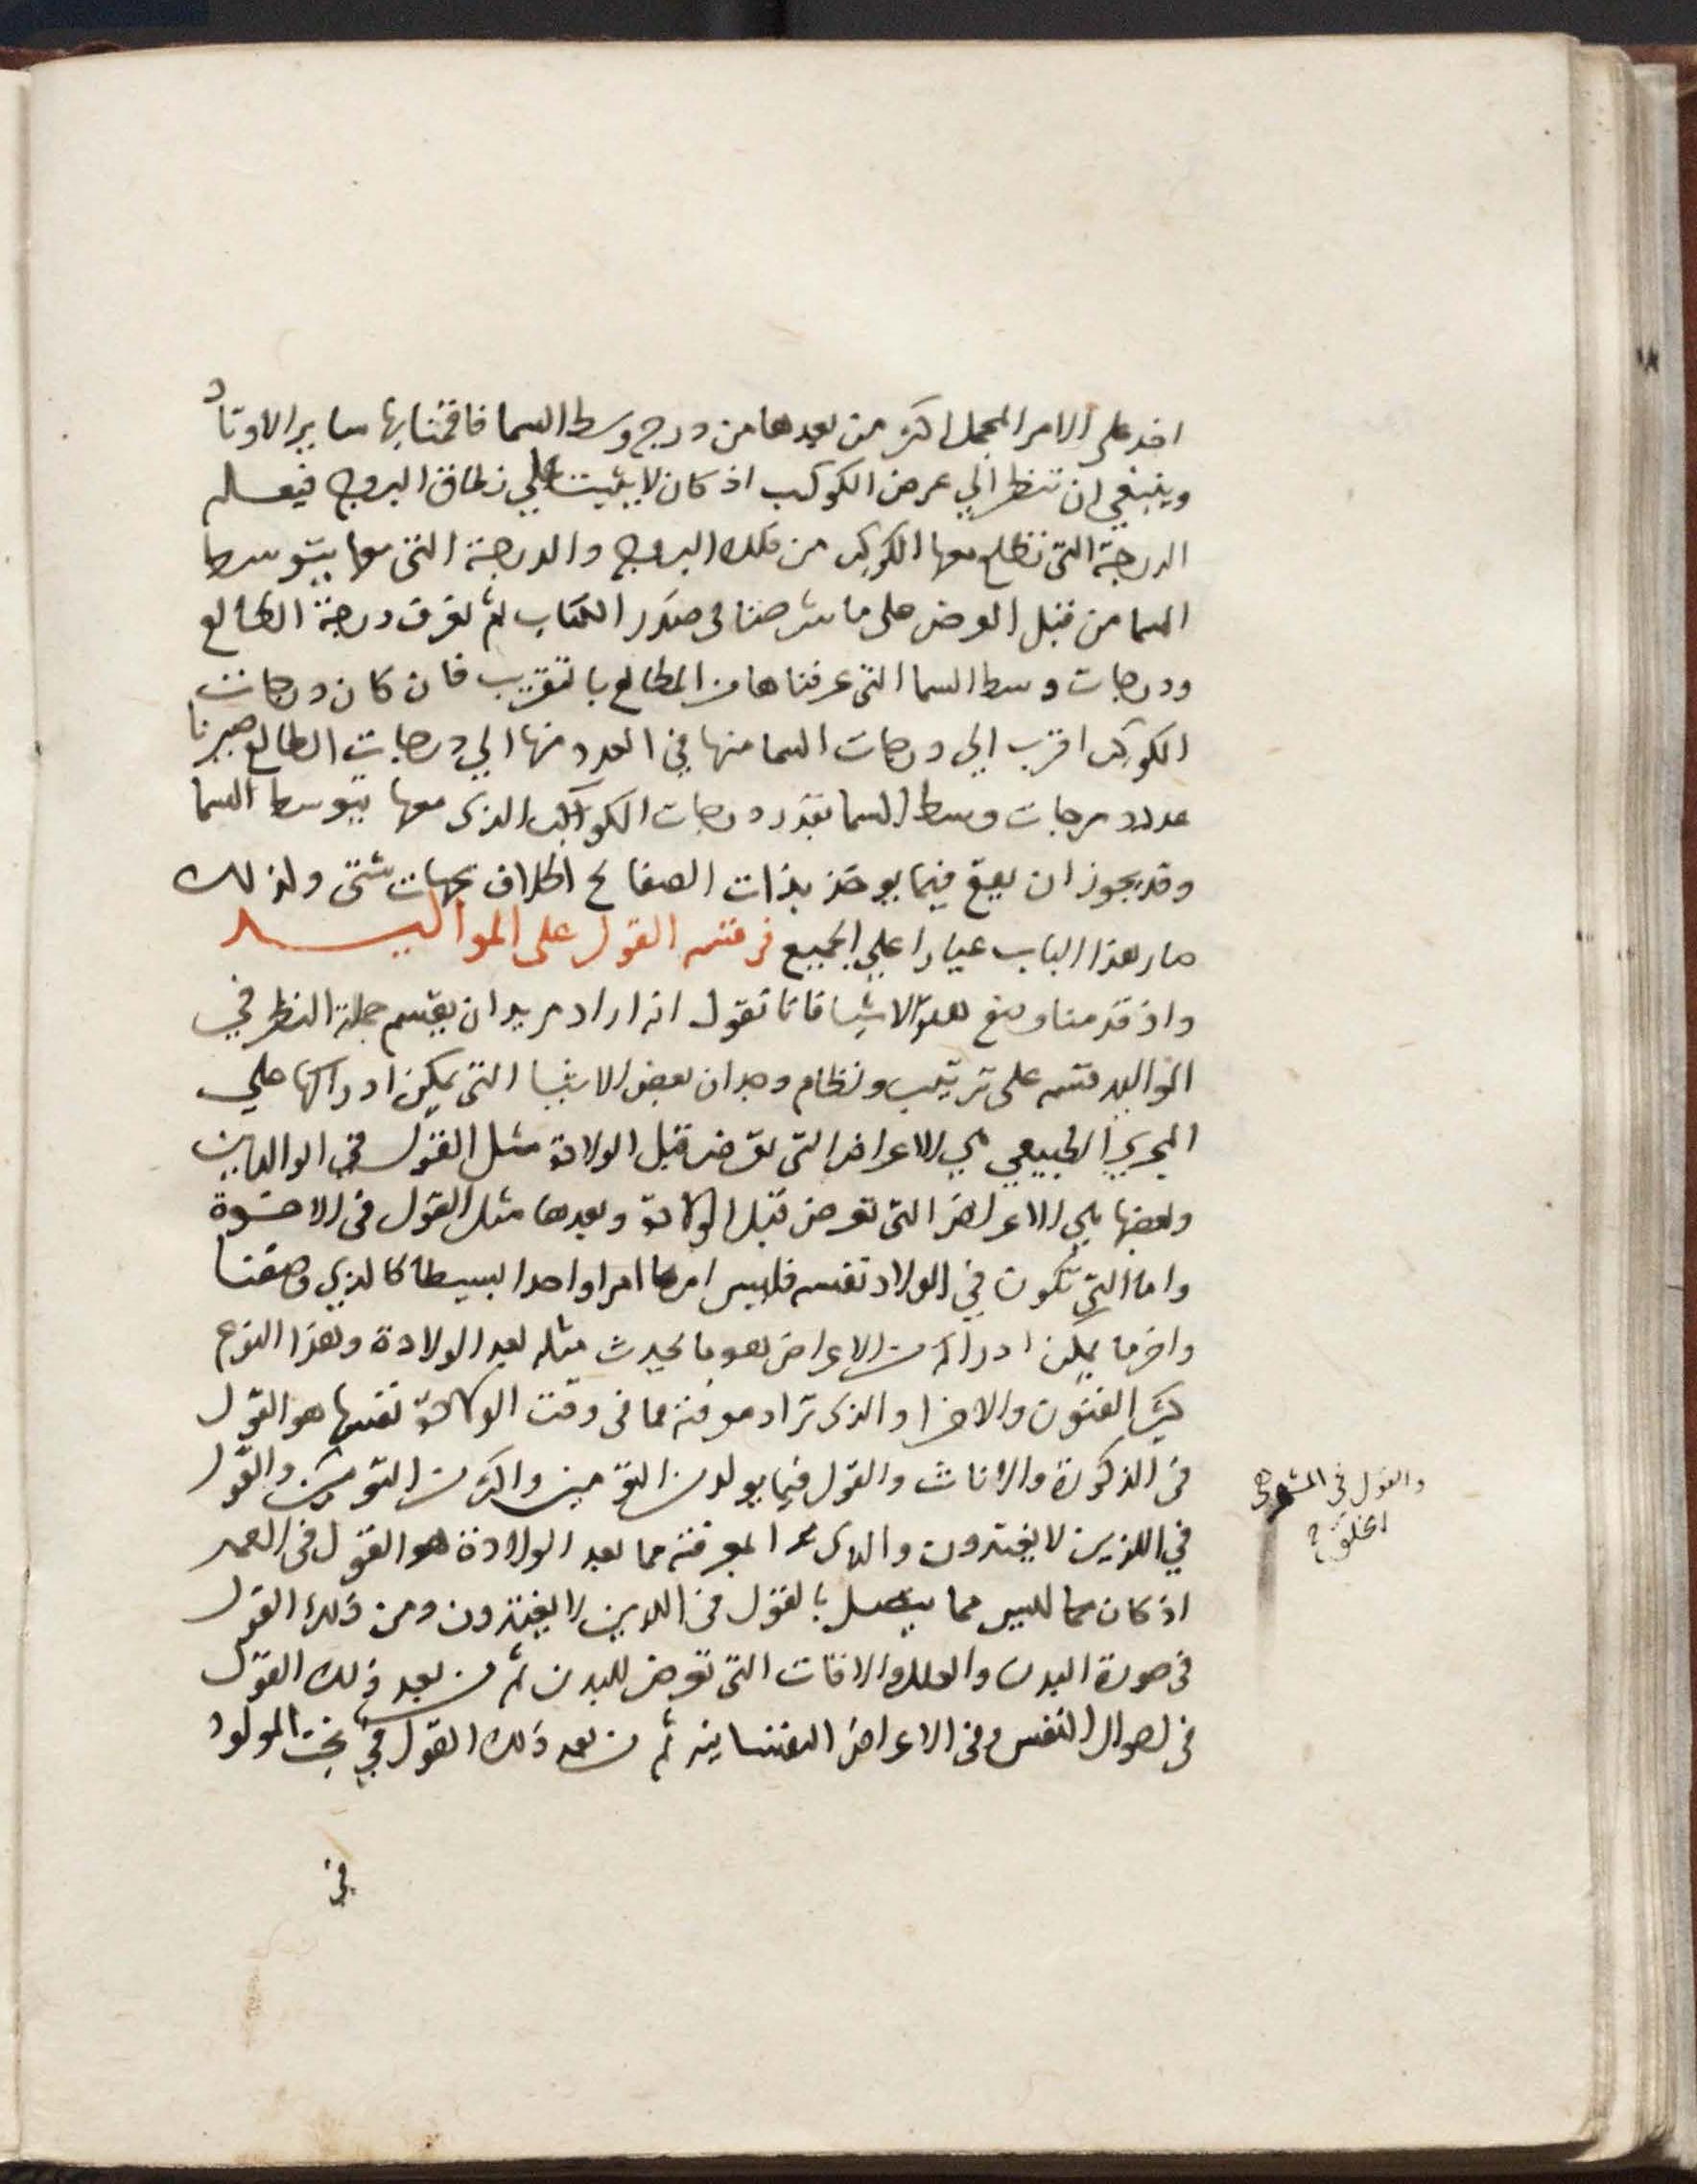 اخد على الامر المجمل اكثر من بعدها من درج وسط السما فاقمنا بها ساير الاوتاد
وينبغي ان تنظر الي عرض الكوكب اذ كان لا يثبت علي نطاق البروج فيعلم
الدرجة التي تطلع معها الكوكب من فلك البروج والدرجة التي معها يتوسط
السما من قبل العرض على ما شرحنا في صدر الكتاب ثم نعرف درجة الطالع
ودرجات وسط السما التي عرفناها من المطالع بالتقريب فان كان درجات
الكوكب اقرب الي درجات السما منها في العدد منها الي درجات الطالع صيرنا
عدد درجات وسط السما بقدر درجات الكواكب الذي معها يتوسط السما
وقد يجوز ان يقع فيما يوخذ بذات الصفايح اختلاف بجهات شتى ولذلك
صار هذا الباب عيارا علي الجميع في قسمه القول على المواليد
واذ قدمنا وضع هولا الاشيا فانا نقول انه اراد مريد ان يقسم جملة النظر في
المواليد قسمه على ترتيب ونظام وجد ان بعض الاشيا التي يمكن ادراكها علي
المجري الطبيعي هي الاعراض التي تعرض قبل الولادة مثل القول في الوالدين
وبعضها هي الاعراض التي تعرض قبل الولادة وبعدها مثل القول في الاخوة
واما التي تكون في الولاد نفسه فليس امرها امرا واحدا بسيطا كالذي وصفنا
واخر ما يمكن ادراكه من الاعراض هو ما يحدث مثله بعد الولادة وهذا النوع
كثير الفنون والاجزا والذي تراد معرفته مما في وقت الولادة نفسها هو القول
في الذكورة والاناث والقول فيما يولد من التومين واكثر من التومين والقول
في اللذين لا يغتدون والذي المعرفته مما بعد الولادة هو القول في العمر
اذ كان مما ليس مما يتصل بالقول في الذين لا يغتدون ومن ذلك القول
في صورة البدن والعلل والافات التي تعرض للبدن ثم من بعد ذلك القول
في احوال النفس وفي الاعراض النفسانيه ثم من بعد ذلك القول في بخت المولود
والقول في المشوهي
الخلق
في